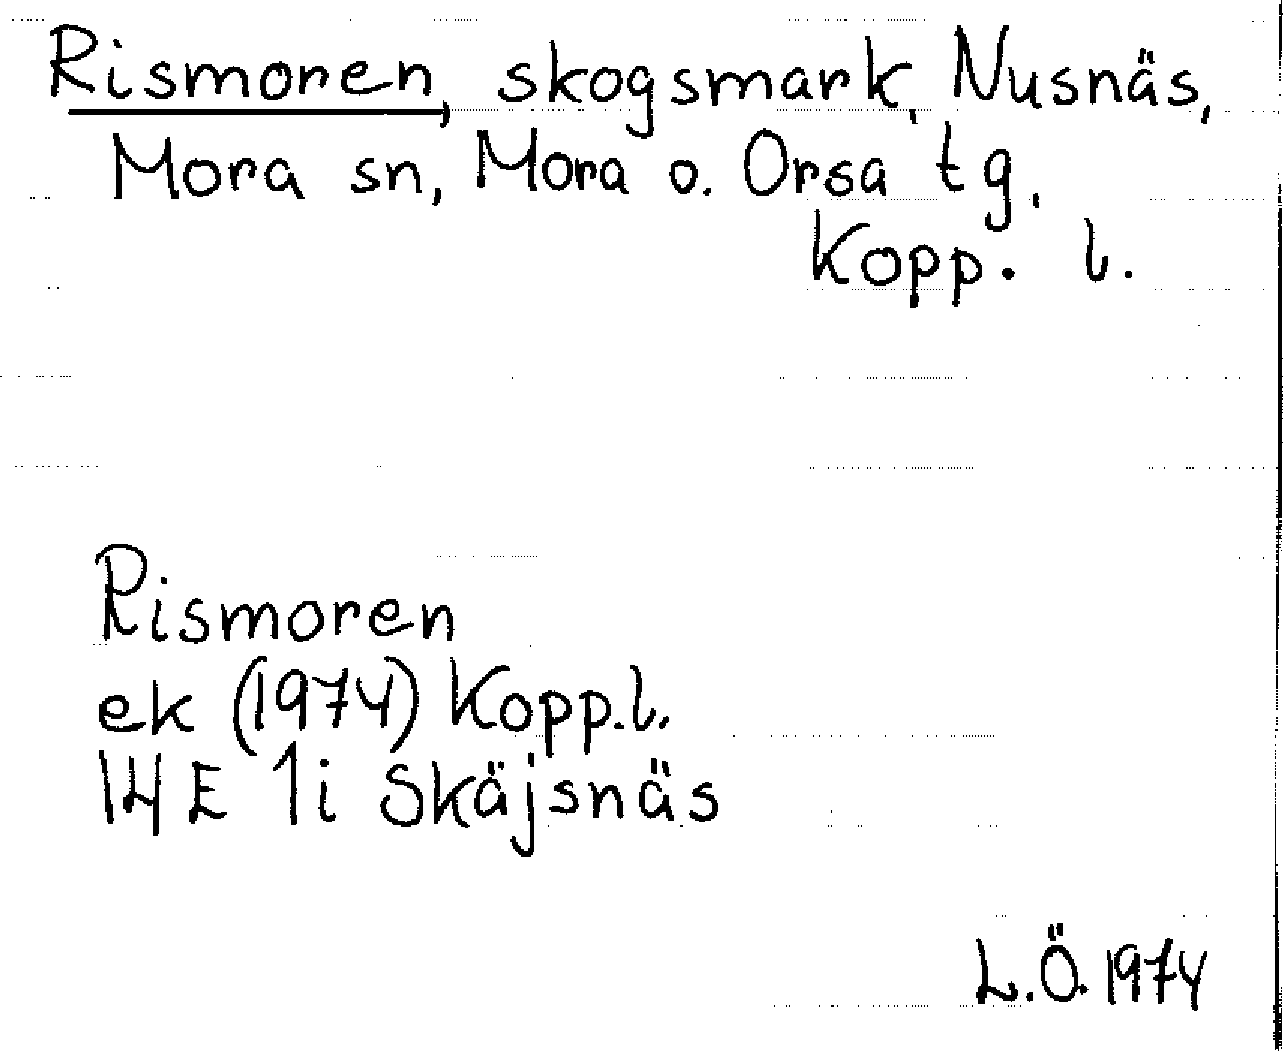 Rismoren, skogsmark, Nusnäs,
Mora sn, Mora o. Orsa tg.
Kopp. l.
Rismoren
ek (1974) Kopp.l.
14 E 1i Skäjsnäs
L.Ö. 1974